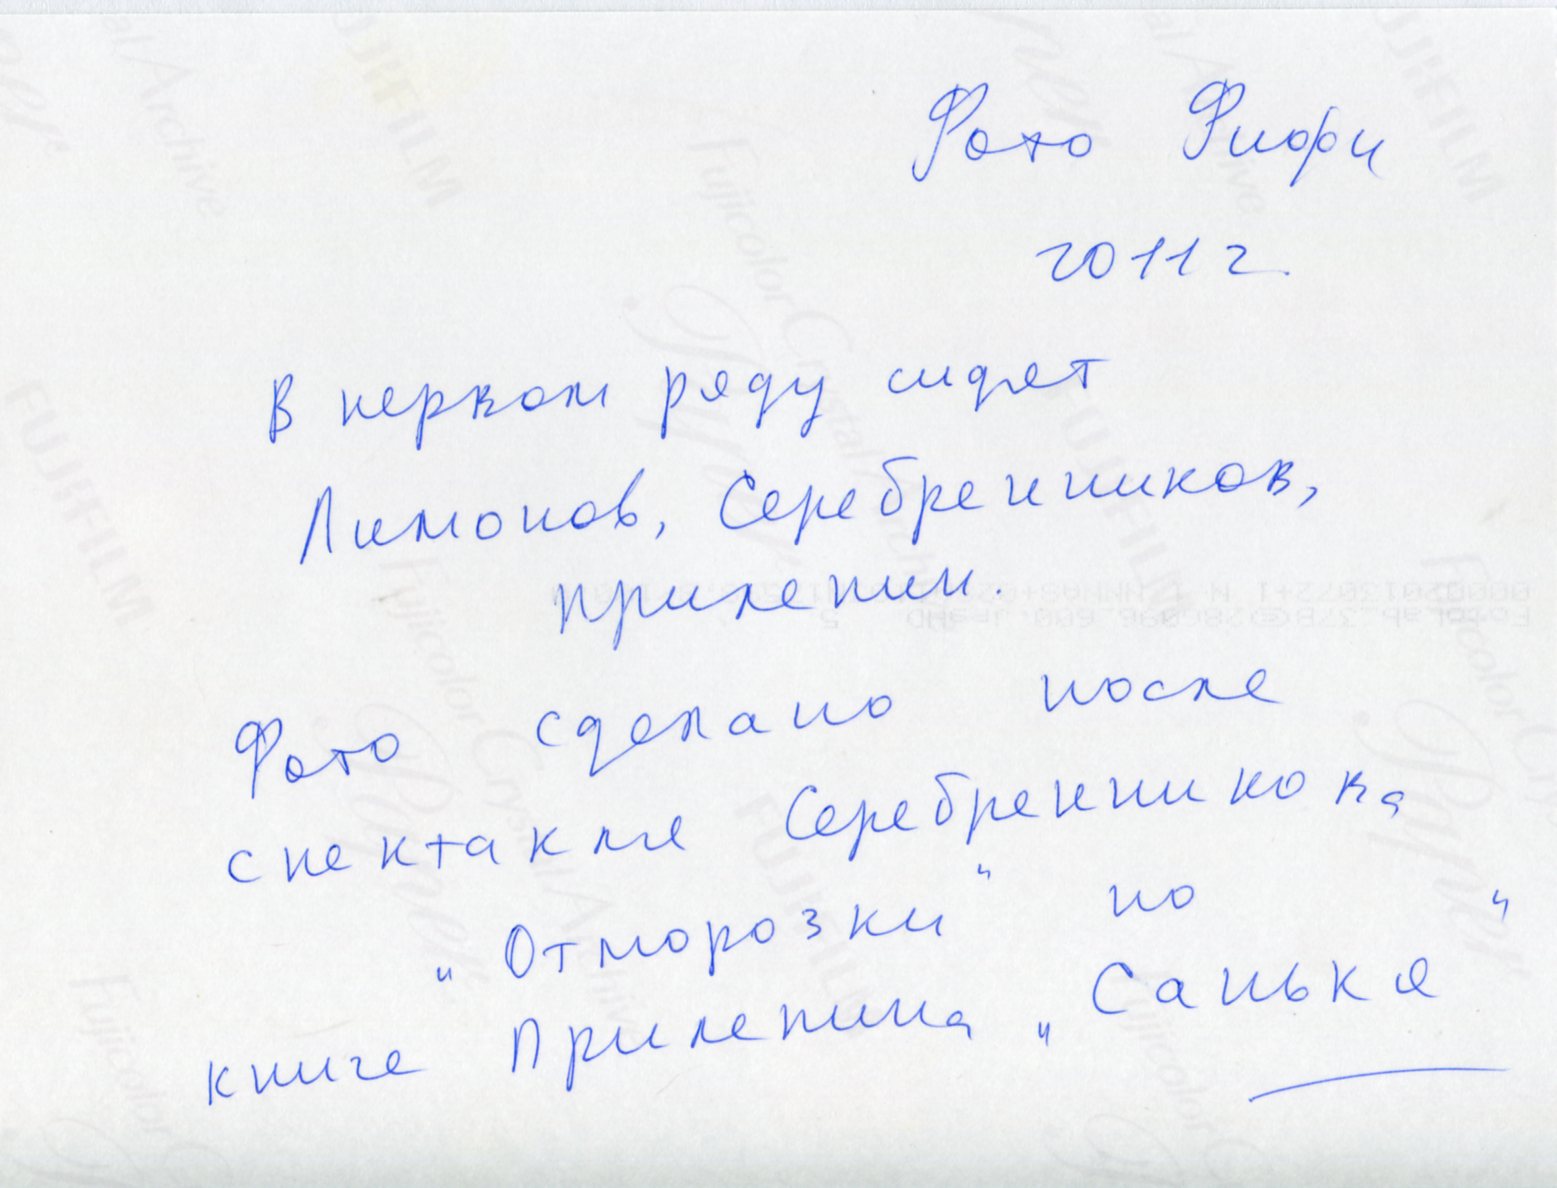 Фото Фиори
2011 г.
В первом ряду сидят
Лимонов, Серебренников,
Прилепин.
Фото сделано после
спектакля Серебренникова
„Отморозки" по
книге Прилепина „Санькя"